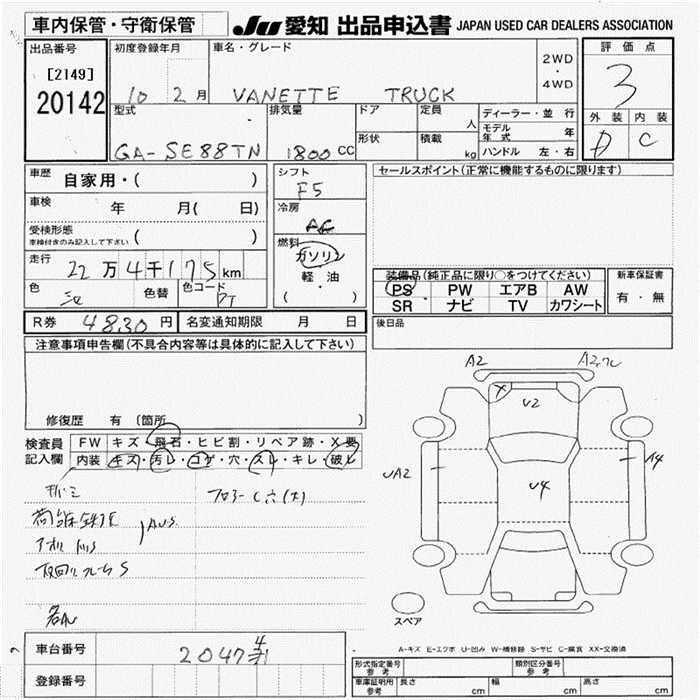 車内保管・守衛保管
JU 愛知 出品申込書 JAPAN USED CAR DEALERS ASSOCIATION
出品番号
[2149]
20142
初度登録年月
10 2月
車名・グレード
VANETTE TRUCK
2WD
・
4WD
評価点
3
外装 内装
D C
型式
GA-SE88TN
排気量
1800 CC
ドア
形状
定員
人
積載
kg
ディーラー・並行
モデル年式 年
ハンドル 左・右
車歴 自家用・( )
車検 年 月( 日)
受検形態
車検付きのみ記入して下さい ( )
走行 22万4千175km
色
色替
色コード
PT
シフト
F5
冷房
AC
燃料
ガソリン
軽・油
( )
セールスポイント(正常に機能するものに限ります)
装備品(純正品に限り○をつけてください)
PS PW エアB AW
SR ナビ TV カワシート
新車保証書
有・無
R券 4830円
名変通知期限 月 日
後日品
注意事項申告欄(不具合内容等は具体的に記入して下さい)
修復歴 有(箇所 )
検査員記入欄
FW キズ・飛石・ヒビ割・リペア跡・X要
内装 キズ・汚レ・コゲ・穴・スレ・キレ・破レ
A2
U2
UA2
U4
A4
スペア
A-キズ E-エクボ U-凹み W-補修跡 S-サビ C-腐食 XX-交換済
車台番号
登録番号
形式指定番号
参考
類別区分番号
参考
車庫証明用
参考
長さ cm
幅 cm
高さ cm